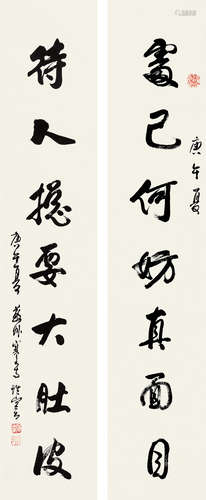 處己何妨真面目
庚午夏
待人總要大肚皮
庚午夏